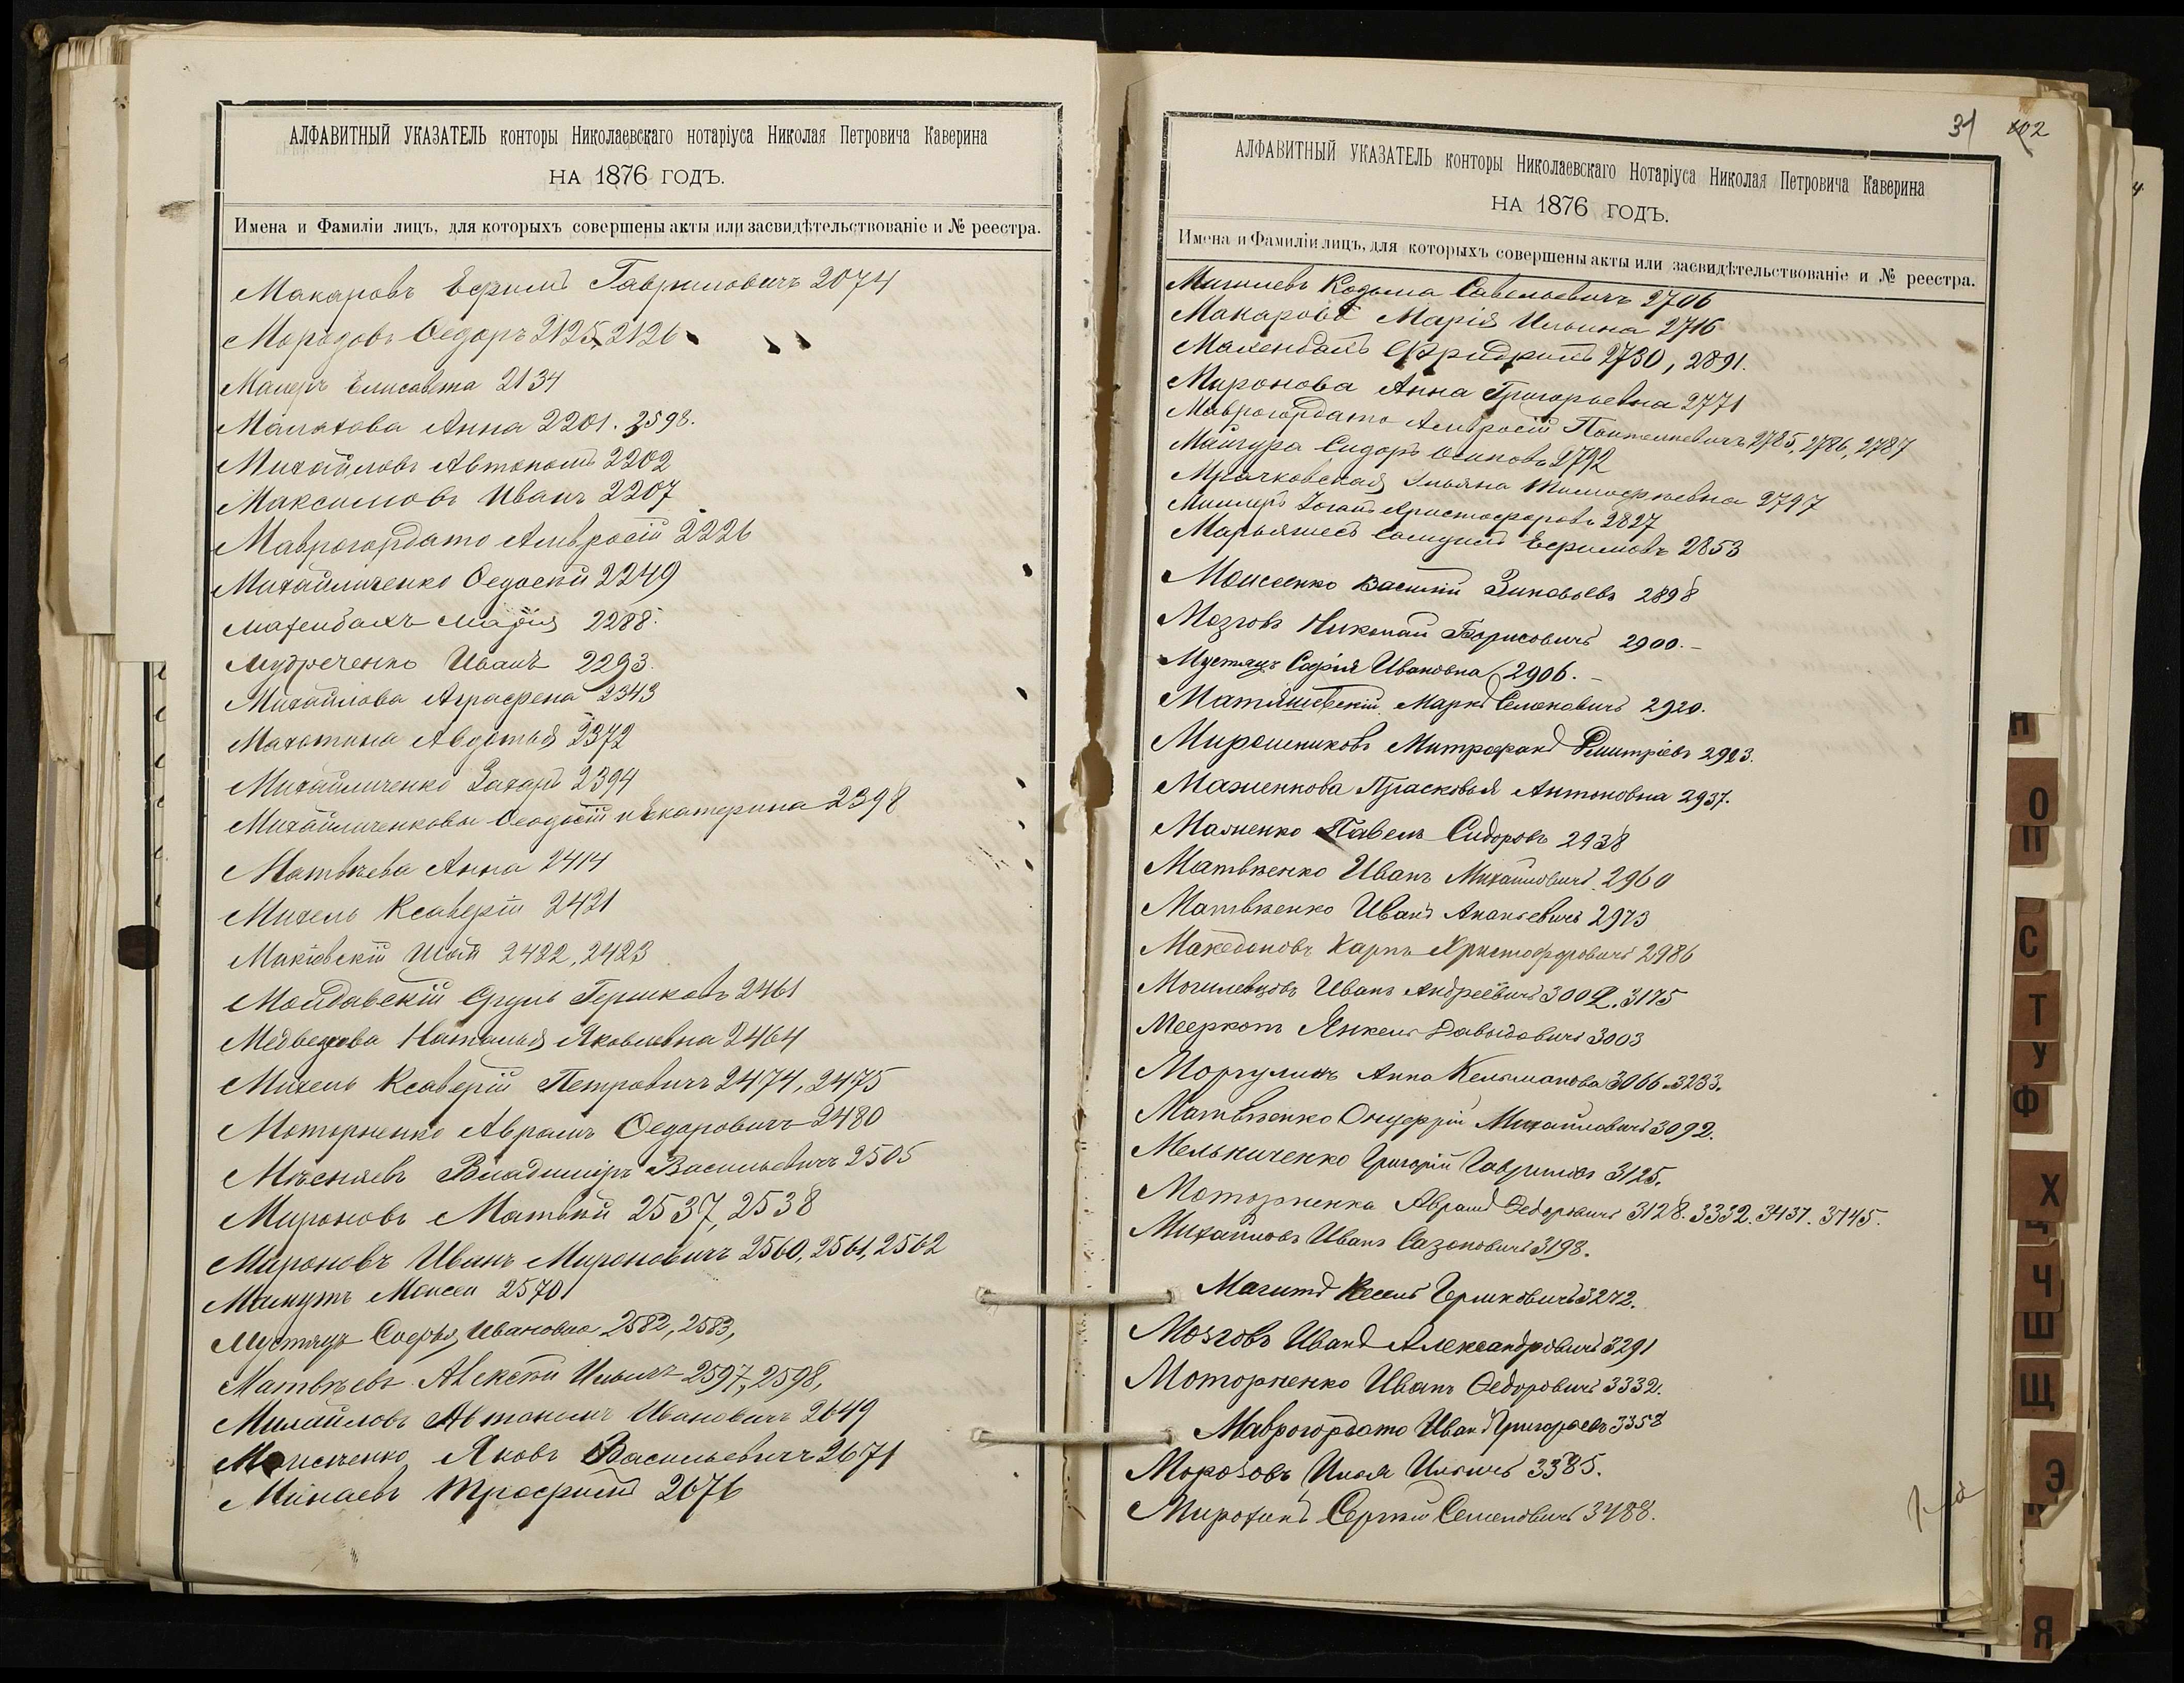 АЛФАВИТНЫЙ УКАЗАТЕЛЬ конторы Николаевскаго нотаріуса Николая Петровича Каверина
НА 1876 ГОДЪ.
Имена и Фамиліи лицъ, для которыхъ совершены акты или засвидѣтельствованіе и № реестра.
Макаровъ Ефимъ Гавриловичъ 2074
Морозовъ Ѳедоръ 2125, 2126
Маперъ Елисавета 2134
Малахова Анна 2201. 2598.
Михайловъ Автономъ 2202
Максимовъ Иванъ 2207
Маврогордато Амвросій 2226
Михайличенко Ѳедосѣй 2249
Махенбахъ Марія 2288.
Мудреченко Иванъ 2293.
Михайлова Аграфена 2343
Махотина Авдотья 2372
Михайличенко Захаръ 2394
Михайличенковы Ѳеодосій и Екатерина 2398
Матвѣева Анна 2414
Михель Ксаверій 2421
Макіовскій 2422, 2423
Молдавскій Сруль Гершковъ 2461
Медведева Наталья Яковлевна 2464
Михель Ксаверій Петровичъ 2474, 2475
Моторненко Аврамъ Ѳедоровичъ 2480
Мѣсняевъ Владиміръ Васильевичъ 2505
Мироновъ Матвѣй 2537, 2538
Мироновъ Иванъ Мироновичъ 2560, 2561, 2562
Мамутъ Моисей 2570
Мустяцъ Софья Ивановна 2582, 2583,
Матвѣевъ Алексѣй Ильичъ 2597, 2598,
Михайловъ Автономъ Ивановичъ 2649
Моисеенко Яковъ Васильевичъ 2671
Минаевъ Трофимъ 2676
31 102
АЛФАВИТНЫЙ УКАЗАТЕЛЬ конторы Николаевскаго Нотаріуса Николая Петровича Каверина
НА 1876 ГОДЪ.
Имена и Фамиліи лицъ, для которыхъ совершены акты или засвидѣтельствованіе и № реестра.
Козьма Савельевичъ 2706
Макарова Марія Ильина 2716
Махенбахъ Фридрихъ 2730, 2891.
Миронова Анна Григорьевна 2771
Маврогордато Амвросій Пантелеевичъ 2785, 2786, 2787
Майгура Сидоръ Осиповъ 2792
Мрачковская Ульяна Тимофеевна 2797
Миллеръ Іоганъ Христофоровъ 2827
Марьяшесъ Ефимовъ 2853
Моисеенко Василій Зиновьевъ 2898
Мозговъ Николай Борисовичъ 2900.-
Мустяцъ Софія Ивановна 2906.-
Матяшевскій Маркъ Семеновичъ 2920.
Мирошниковъ Митрофанъ Дмитріевъ 2923.
Маженкова Прасковья Антоновна 2937.
Маженко Павелъ Сидоровъ 2938
Матвѣенко Иванъ Михайловичъ 2960
Матвѣенко Иванъ Ананьевичъ 2973
Македоновъ Карпъ Христофоровичъ 2986
Могилевцовъ Иванъ Андреевичъ 3002. 3175
Мееркопъ Янкель Давыдовичъ 3003
Моргулисъ Анна Кельманова 3066. 3283.
Матвѣенко Онуфрій Михайловичъ 3092.
Мельниченко Григорій Гавриловъ 3125.
Моторненко Аврамъ Ѳедоровичъ 3128. 3332. 3437. 3745.
Михайловъ Иванъ Сазоновичъ 3198.
Магитъ Кесель Гершковичъ 3272.
Мозговъ Иванъ Александровичъ 3291
Моторненко Иванъ Ѳедоровичъ 3332.
Маврогордато Иванъ Григорьевъ 3358
Морозовъ Илья Ильичъ 3385.
Мирохинъ Сергѣй Семеновичъ 3488.
Н
О
П
С
Т
У
Ф
Х
Ц
Ч
Ш
Щ
Э
Я